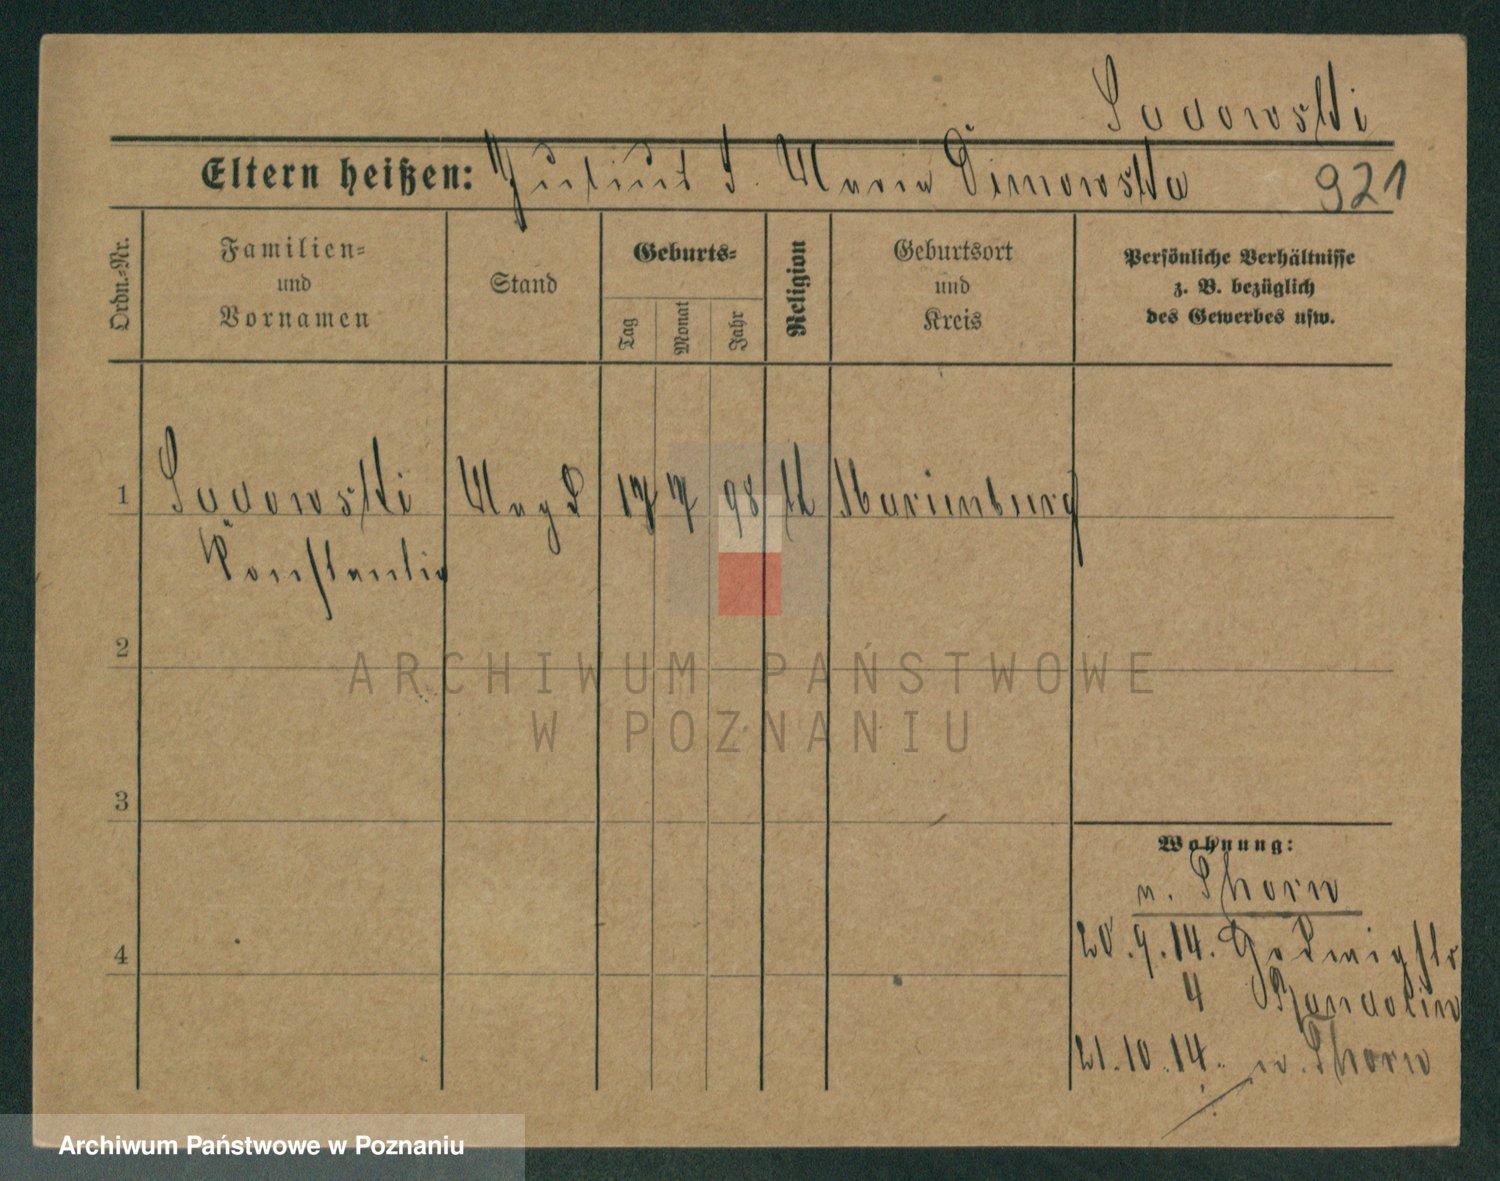 Sadowski
Eltern heißen: Julius u. Maria Dimowska 921
Ordn.-Nr.
Familien-
und
Vornamen
Stand
Geburts-
Tag
Monat
Jahr
Religion
Geburtsort
und
Kreis
Persönliche Verhältnisse
z. B. bezüglich
des Gewerbes usw.
1 Sadowski Magd 17 7 98 kt Marienburg
Konstantia
2
ARCHIWUM PAŃSTWOWE
W POZNANIU
3
Wohnung:
n. Thorn
4
20.9.14. Hedwigstr
4
21.10.14. n. Thorn
Archiwum Państwowe w Poznaniu